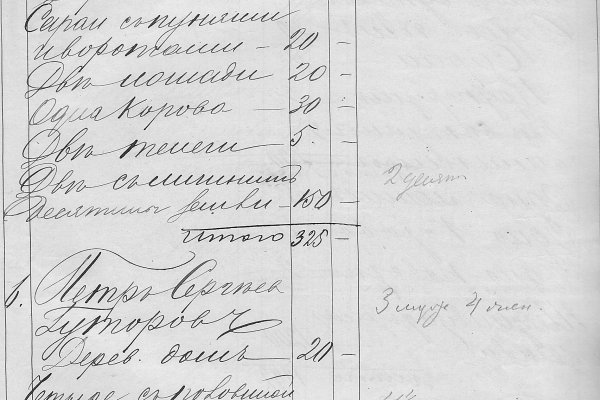 Сараи съ пунями
и воротами – 20 –
Двѣ лошади 20 –
Одна Корова – 30 –
Двѣ телеги 5. –
Двѣ съ
десятины земли – 150 – 2 десят
Итого 325 –
6. Петръ Сергѣев
3 муж 4 жен.
Гуторовъ
Дерев. домъ – 20 –